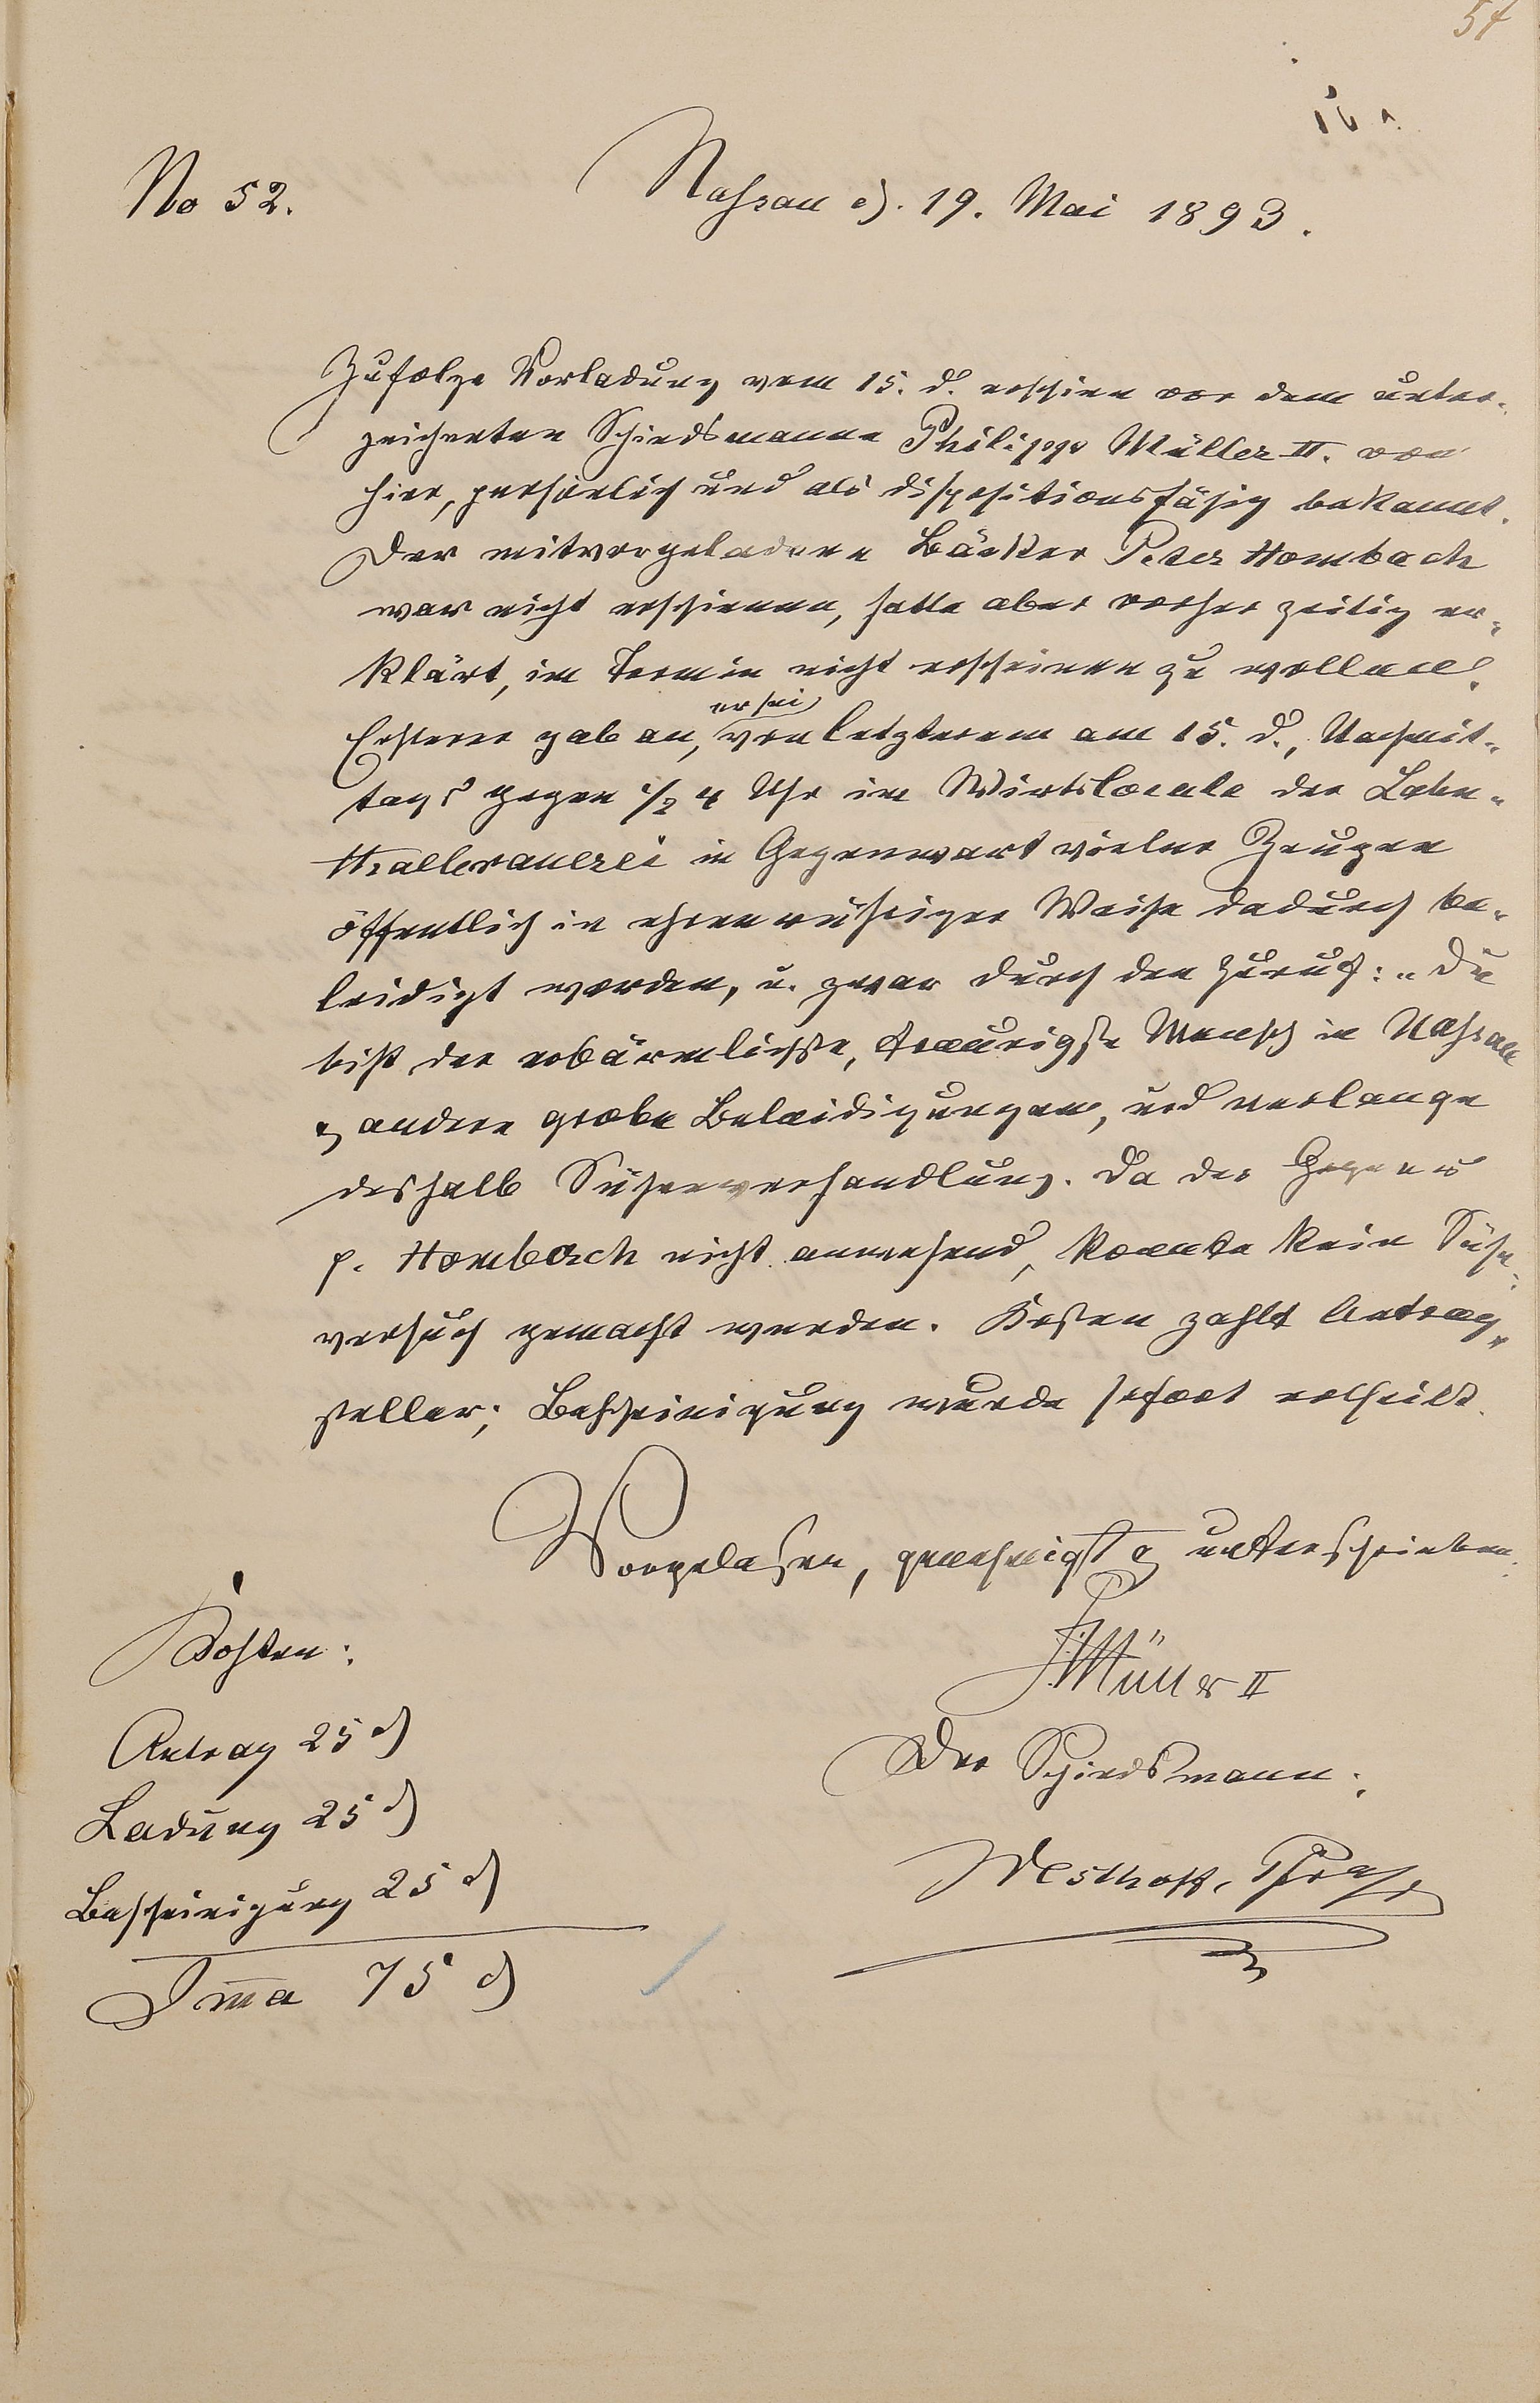 54
No 52.
Nassau d. 19. Mai 1893.
Zufolge Vorladung vom 15. d. erschien vor dem unter-
zeichneten Schiedsmanne Philipp Müller II. von
hier, persönlich und als dispositionsfähig bekannt.
Der mitvorgeladene Bäcker Peter Hombach
war nicht erschienen, hatte aber vorher zeitig er-
klärt, im Termin nicht erscheinen zu wollen.
er sei
Ersterer gab an, von letzterem am 15. d., Nachmit-
tags gegen 1/2 4 Uhr im Wirtslocale der Lahn-
thalbrauerei in Gegenwart vieler Zeugen
öffentlich in ehrenrühriger Weise dadurch be-
leidigt worden, u. zwar durch den Zuruf: „Du
bist der erbärmlichste, traurigste Mensch in Nassau
& andere grobe Beleidigungen, und verlange
deshalb Sühneverhandlung. Da der Gegner
p. Hombach nicht anwesend, konnte kein Sühn-
versuch gemacht werden. Kosten zahlt Antrag-
steller; Bescheinigung wurde sofort ertheilt.
Vorgelesen, genehmigt & unterschrieben.
Ph. Müller II
Der Schiedsmann:
Westhoff,
Kosten:
Antrag 25 ₰
Ladung 25 ₰
Bescheinigung 25 ₰
Sma 75 ₰